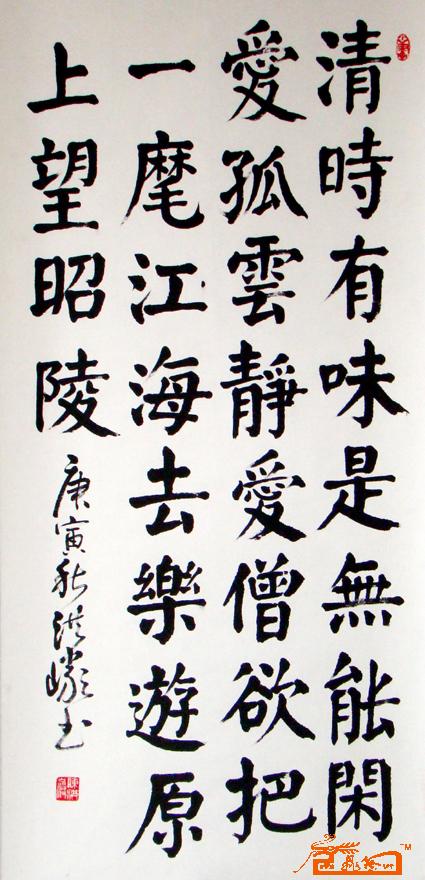 清時有味是無能閑
愛孤雲靜愛僧欲把
一麾江海去樂遊原
上望昭陵
庚寅秋洪峰书